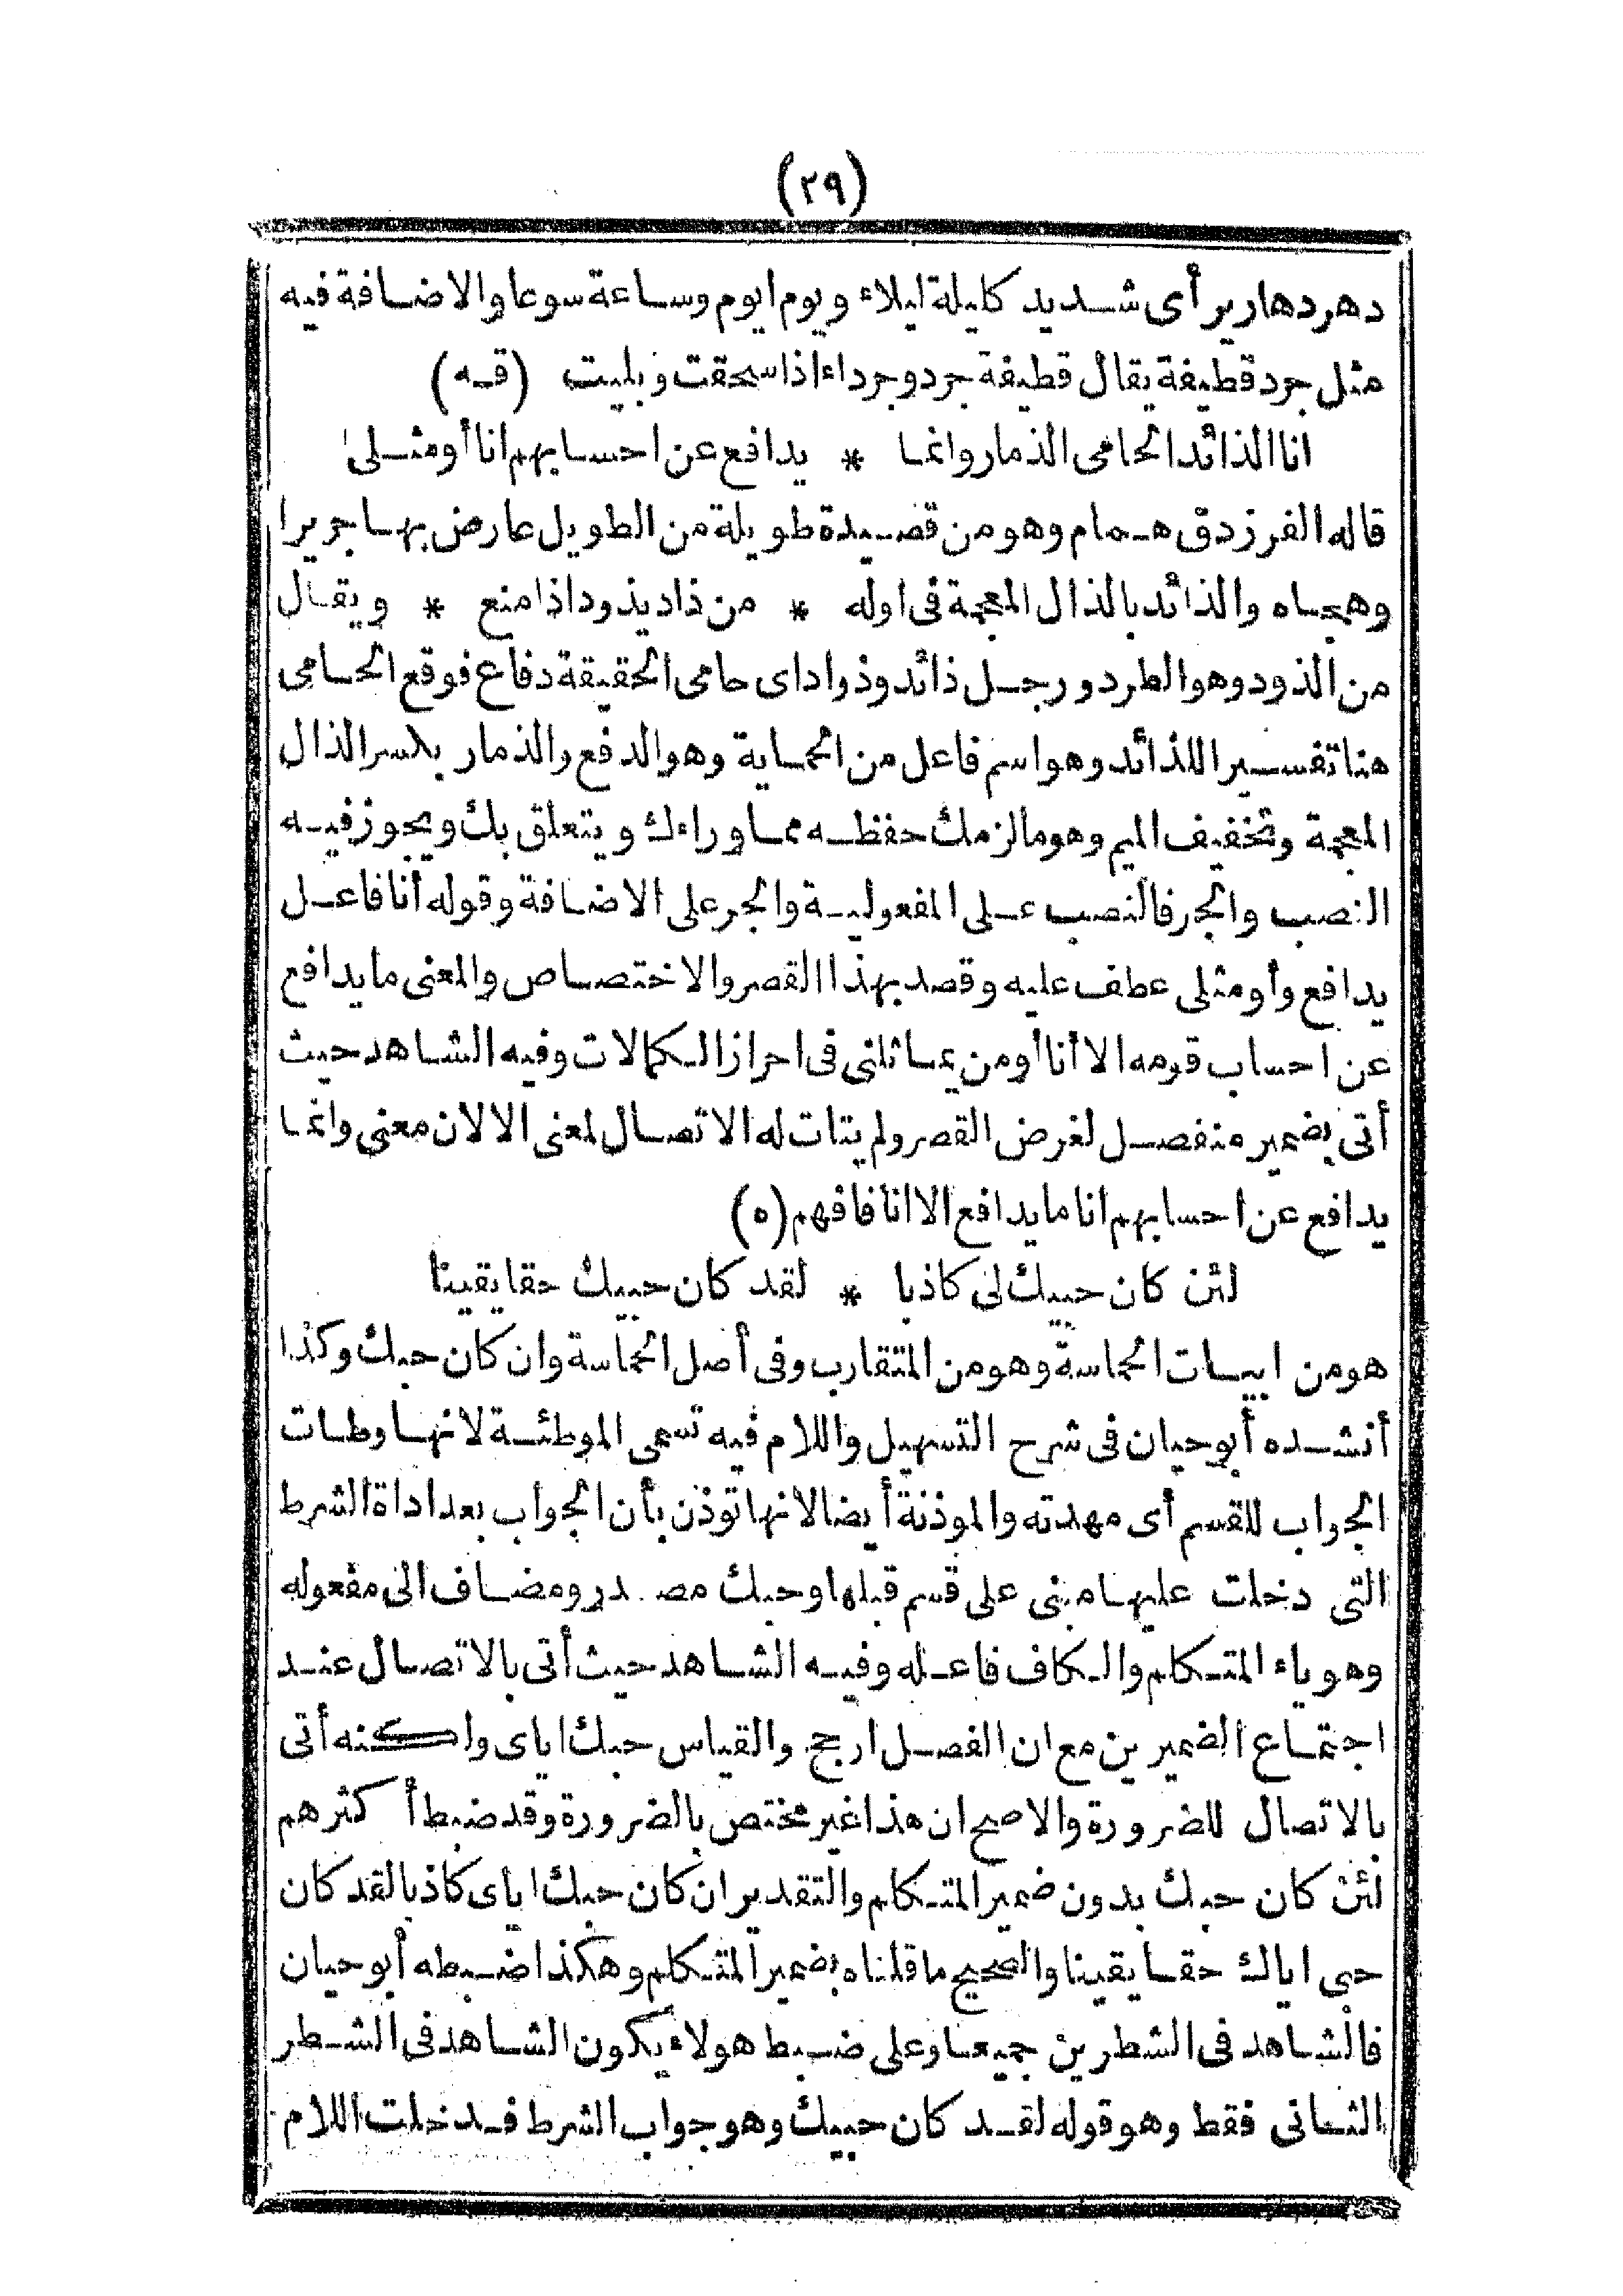 (٢٩)
دهر دهارير أى شديد كليلة ليلاء ويوم ايوم وساعة سوعا والاضافة فيه
مثل جرد قطيفة يقال قطيفة جرد وجرداء اذا سحقت وبليت (قه)
انا الذائد الحامى الذمار وانما * يدافع عن احسابهم انا أو مثلى
قاله الفرزدق همام وهو من قصيدة طويلة من الطويل عارض بها جريرا
وهجاه والذائد بالذال المعجمة فى اوله * من ذاد يذود اذا منع * ويقال
من الذود وهو الطرد ورجل ذائد وذواد اى حامى الحقيقة دفاع فوقع الحامى
هنا تفسيرا للذائد وهو اسم فاعل من الحماية وهو الدفع والذمار بكسر الذال
المعجمة وتخفيف الميم وهو ما لزمك حفظه مما وراءك ويتعلق بك ويجوز فيه
النصب والجر فالنصب على المفعولية والجر على الاضافة وقوله أنا فاعل
يدافع وأو مثلى عطف عليه وقصد بهذا القصر والاختصاص والمعنى ما يدافع
عن احساب قومه الا أنا أو من يماثلنى فى احراز الكمالات وفيه الشاهد حيث
أتى بضمير منفصل لغرض القصر ولم يتات له الاتصال لمعنى الا لان معنى وانما
يدافع عن احسابهم انا ما يدافع الا انا فافهم (ه)
لئن كان حبيك لى كاذبا * لقد كان حبيك حقا يقينا
هو من ابيات الحماسة وهو من المتقارب وفى أصل الحماسة وان كان حبك وكذا
أنشده أبو حيان فى شرح التسهيل واللام فيه تسمى الموطئة لانها وطات
الجواب للقسم أى مهدته والموذنة أيضا لانها توذن بأن الجواب بعد اداة الشرط
التى دخلت عليها مبنى على قسم قبلها وحبك مصدر ومضاف الى مفعوله
وهو ياء المتكلم والكاف فاعله وفيه الشاهد حيث أتى بالاتصال عند
اجتماع الضميرين مع ان الفصل ارجح والقياس حبك اياى ولكنه أتى
بالاتصال للضرورة والاصح ان هذا غير مختص بالضرورة وقد ضبط أكثرهم
لئن كان حبك بدون ضمير المتكلم والتقدير ان كان حبك اياى كاذبا لقد كان
حبى اياك حقا يقينا والصحيح ما قلناه بضمير المتكلم وهكذا ضبطه أبو حيان
فالشاهد فى الشطرين جميعا وعلى ضبط هولاء يكون الشاهد فى الشطر
الثانى فقط وهو قوله لقد كان حبيك وهو جواب الشرط فدخلت اللام